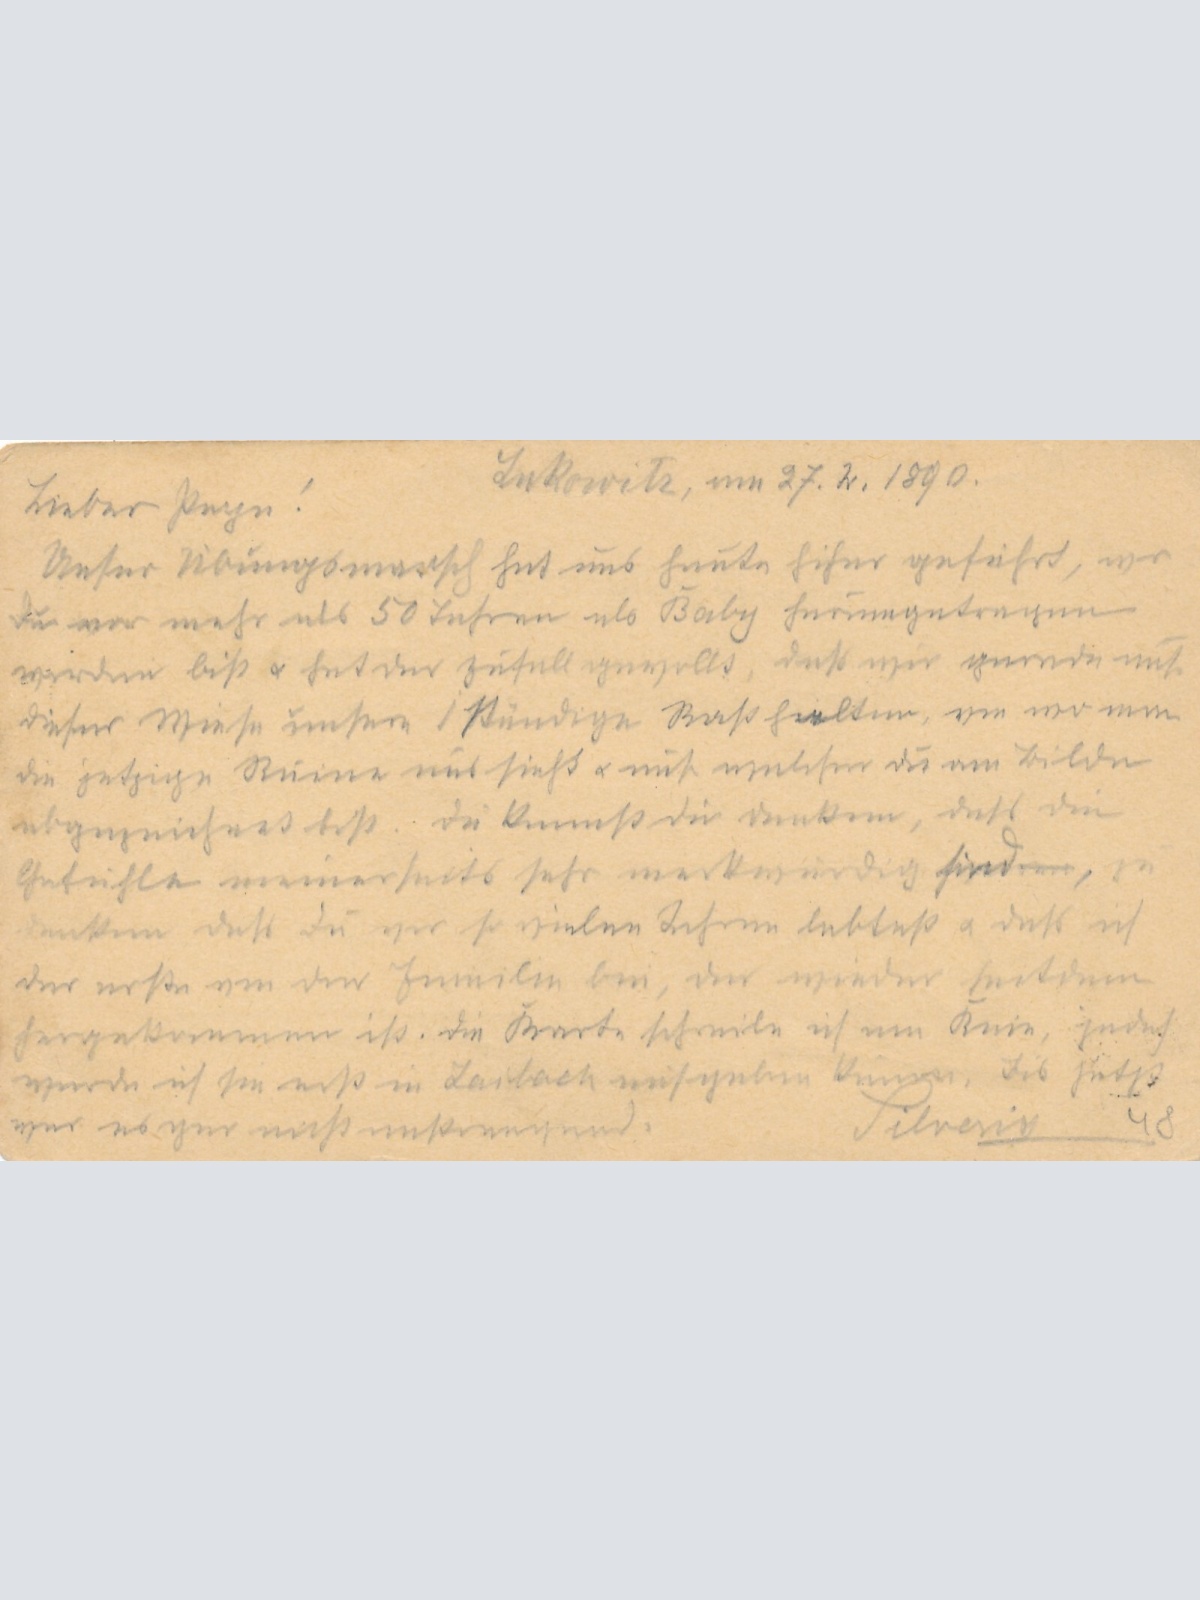 Lukowitz, am 27.2.1890.
Lieber Papa!
Unser Übungsmarsch hat uns heute hieher geführt, wo
Du vor mehr als 50 Jahren als Baby herumgetragen
worden bist & hat der Zufall gewollt, daß wir gerade auf
dieser Wiese unsere 1 stündige Rast hielten, von wo man
die jetzige Ruine aus sieht & auf welcher du am Bilde
abgezeichnet bist. Du kannst dir denken, daß die
Gefühle meinerseits sehr merkwürdig sind, zu
denken daß Du vor so vielen Jahren lebtest & daß ich
der erste von der Familie bin, der wieder seitdem
hergekommen ist. Die Karte schreibe ich am Knie, jedoch
werde ich sie erst in Laibach aufgeben können. Bis jetzt
war es gar nicht anstrengend.
48